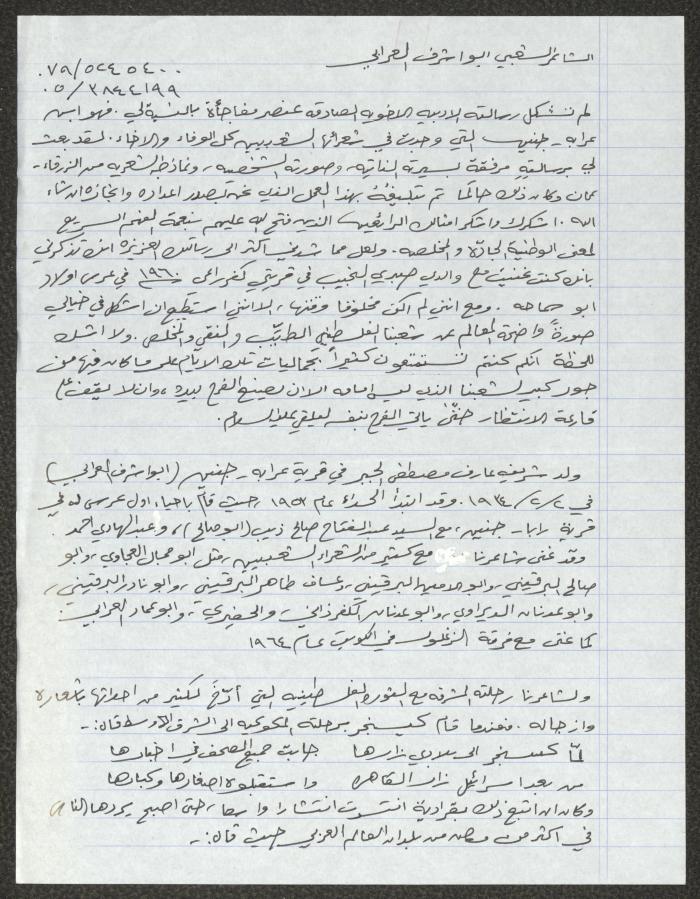 الشاعر الشعبي ابو اشرف العرابي
٠٧٩/٥٢٤٥٤٠٠
٠٥/٣٨٤٤١٩٩
لم تشكل رسالته الادبية الاخوية الصادقة عنصر مفاجأة بالنسبة لي. فهو ابن
عرابه - جنين التي وجدت في شعرائها الشعبيين كل الوفاء والاخاء. لقد بعث
لي برسالته مرفقة بسيرته الذاتية، وصورته الشخصية، ونماذجه الشعرية من الزرقاء -
عمان وكان ذلك حالما تم تبليغه بهذا العمل الذي نحن بصدد اعداده وانجازه ان شاء
الله. اشكرك واشكر امثالك الرائعين الذين فتح الله عليهم بنعمة الفهم السريع
لمعنى الوطنية الجادة والمخلصة. ولعل مما شدني اكثر الى رسالتك العزيزة انك تذكرني
بانك كنت غنيت مع والدي صبري النجيب في قريتي كفر راعي ١٩٦٠ في عرس اولاد
ابو سماحه. ومع انني لم اكن مخلوقا وقتها، الا انني استطيع ان اشكل في خيالي
صورةً واضحة المعالم عن شعبنا الفلسطيني الطيّب والنقي والمخلص. ولا اشك
للحظة انكم كنتم تستمتعون كثيراً بجماليات تلك الايام على ما كان فيها من
جور كبير لشعبنا الذي ليس امامه الا ان يصنع الفرح بيده، وان لا يقف على
قارعة الانتظار حتّى يأتي الفرح بنفسه ليلقي علينا السلام.
ولد شريف عارف مصطفى الجبر في قرية عرابه - جنين (ابو اشرف العرابي)
في ٢/٢/١٩٣٤. وقد ابتدأ الحداء عام ١٩٥٢ حيث قام باحياء اول عرس له في
قرية رابا - جنين، مع السيد عبد الفتاح صالح ذيب (ابو صالح)، وعبد الهادي احمد.
وقد غنى شاعرنا مع كثير من الشعراء الشعبيين، مثل ابو جمال العجاوي، وابو
صالح البرقيني، وابو الامين البرقيني، وعساف طاهر البرقيني، وابو نادر البرقيني،
وابو عدنان الديراوي، وابو عدنان الكفرذاني، والحضيري، وابو عماد العرابي.
كما غنى مع فرقة الزغلول في الكويت عام ١٩٦٤
ولشاعرنا رحلته المشرفة مع الثورة الفلسطينيه التي أرّخَ لكثير من احداثها باشعاره
وازجاله. فعندما قام كيسنجر برحلته المكوكيه الى الشرق الاوسط قال: -
لمّا كيسنجر الى بلادي زارها جابت جميع الصحف في اخبارها
من بعد اسرائيل زار القاهره واستقبلوه اصغارها وكبارها
وكان ان اتبع ذلك بقرادية انتشرت انتشارا واسعا، حتى اصبح يرددها الناس
في اكثر من مكان من بلدان العالم العربي حيث قال: -